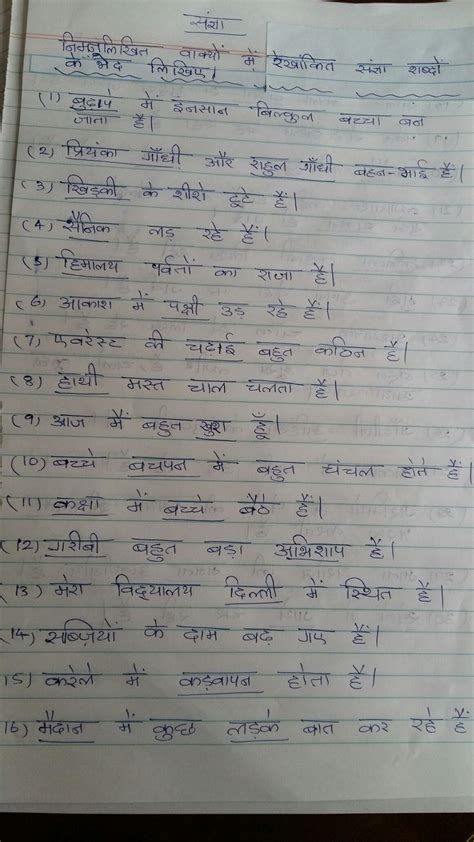 संज्ञा
निम्नलिखित वाक्यों में रेखांकित संज्ञा शब्दों
के भेद लिखिए।
(1) बुढ़ापे में इनसान बिल्कुल बच्चा बन
जाता है।
(2) प्रियंका गाँधी और राहुल गाँधी बहन-भाई हैं।
(3) खिड़की के शीशे टूटे हैं।
(4) सैनिक लड़ रहे हैं।
(5) हिमालय पर्वतों का राजा है।
(6) आकाश में पक्षी उड़ रहे हैं।
(7) एवरेस्ट की चढ़ाई बहुत कठिन है।
(8) हाथी मस्त चाल चलता है।
(9) आज मैं बहुत खुश हूँ।
(10) बच्चे बचपन में बहुत चंचल होते हैं।
(11) कक्षा में बच्चे बैठे हैं।
(12) गरीबी बहुत बड़ा अभिशाप है।
(13) मेरा विद्यालय दिल्ली में स्थित है।
(14) सब्ज़ियों के दाम बढ़ गए हैं।
15) करेले में कड़वापन होता है।
16) मैदान में कुछ लड़के बात कर रहे हैं